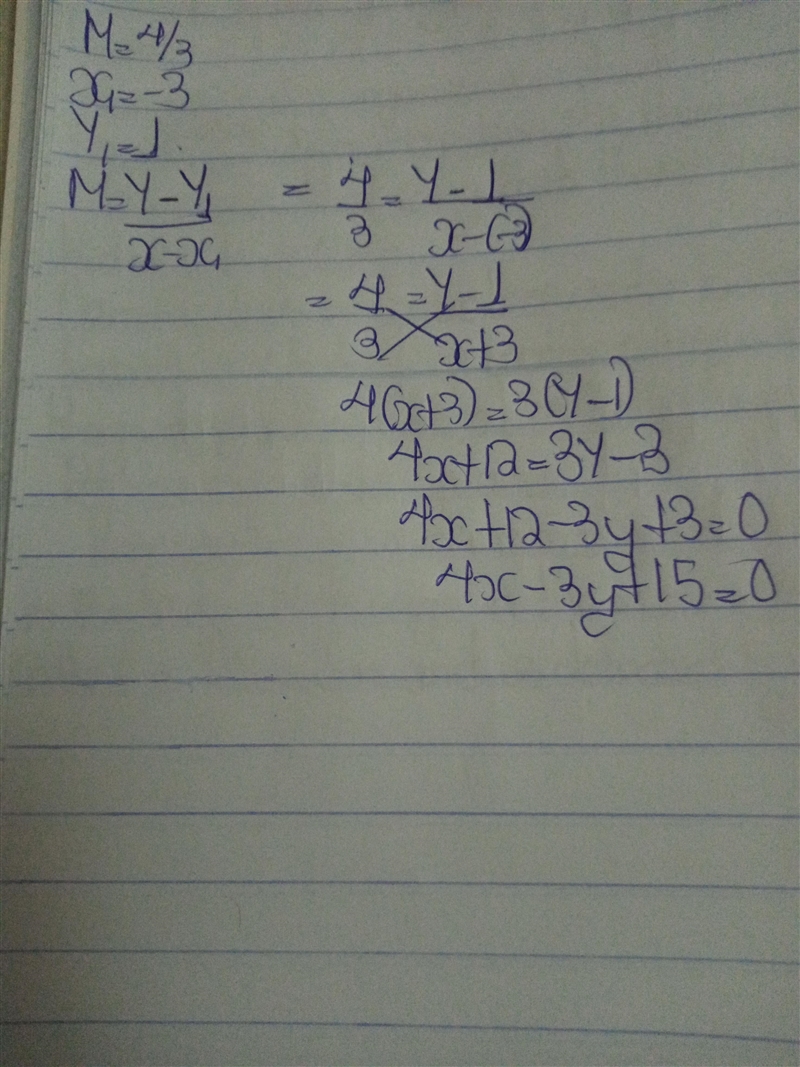 M = 4/3
x₁ = -3
Y₁ = 1.
M = Y - Y₁ / x - x₁ = 4/3 = Y - 1 / x - (-3)
= 4/3 = Y - 1 / x + 3
4(x+3) = 3(Y - 1)
4x + 12 = 3Y - 3
4x + 12 - 3y + 3 = 0
4x - 3y + 15 = 0